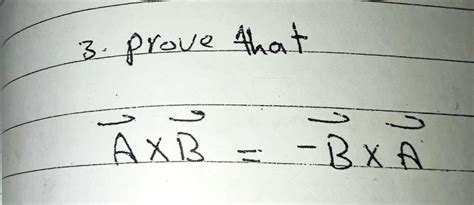 3. prove that
A⃗ X B⃗ = -B⃗ X A⃗